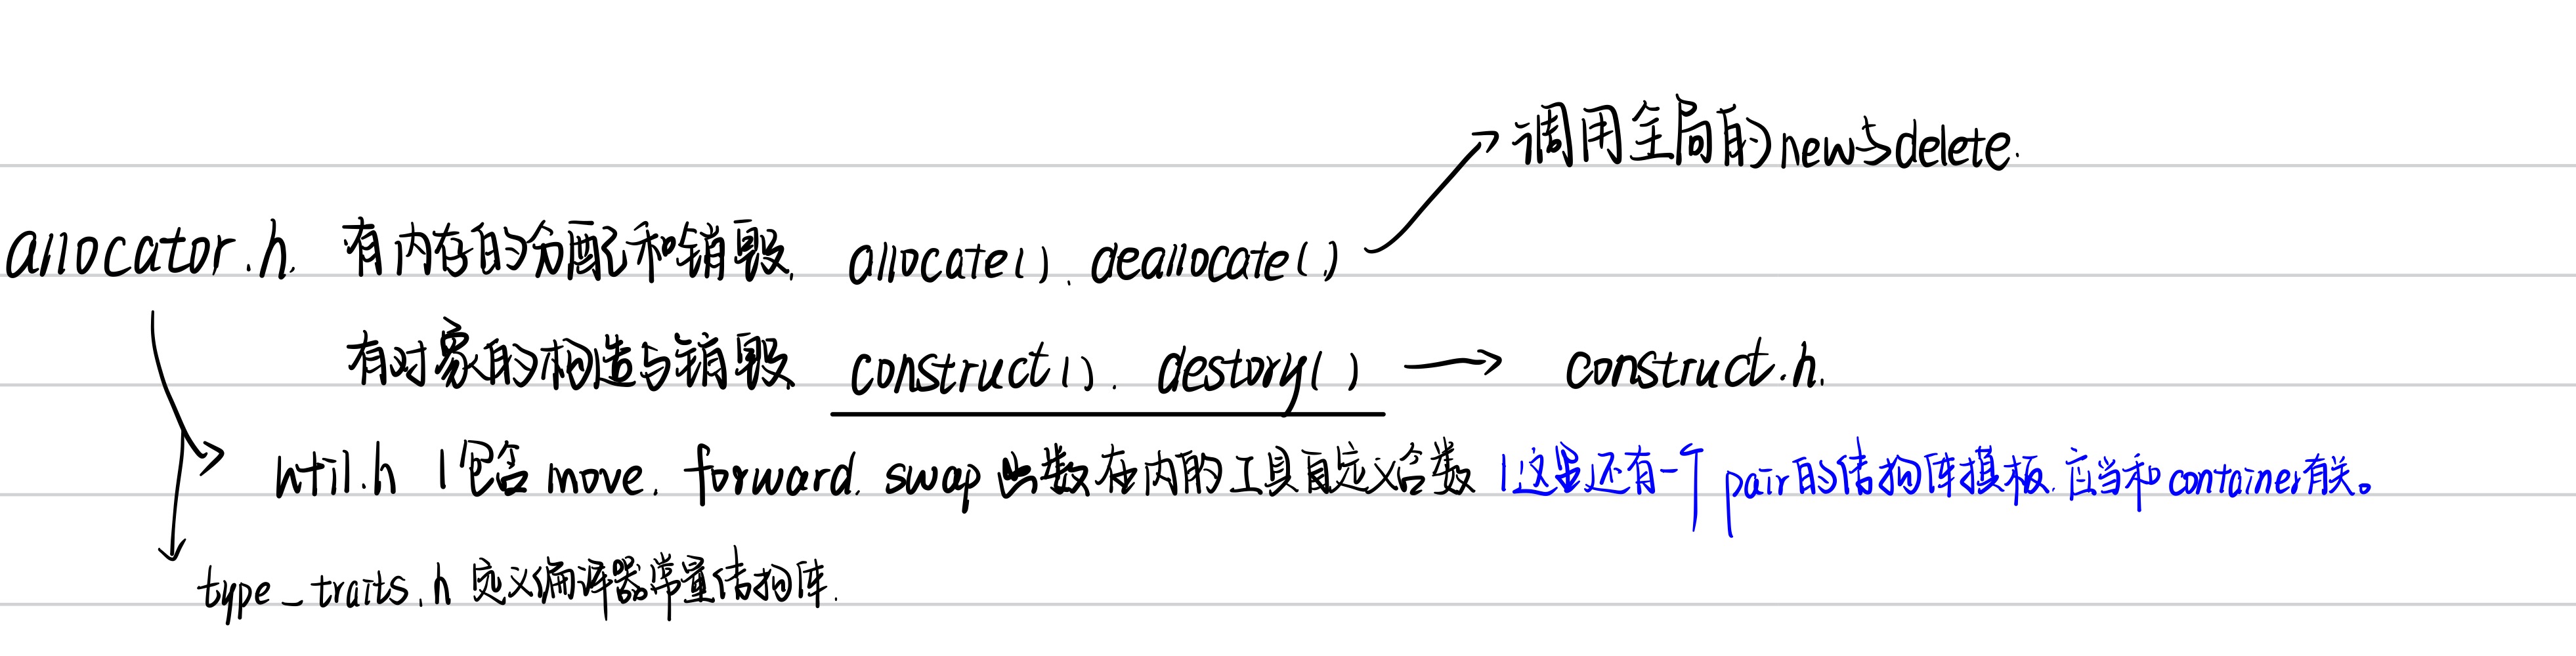 调用全局的new与delete.
allocator.h. 有内存的分配和销毁, allocate(). deallocate()
有对象的构造与销毁 construct(). destory() → construct.h.
util.h (包含move. forward. swap 函数在内的工具自定义函数 (这里还有一个pair的结构体模板. 应当和container有关。
type_traits.h 定义编译器常量结构体.